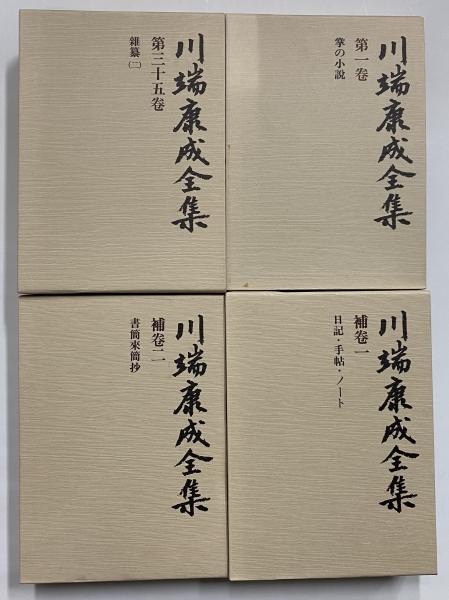 川端康成全集
第三十五巻
雑纂(二)
川端康成全集
第一巻
掌の小説
川端康成全集
補巻二
書簡来簡抄
川端康成全集
補巻一
日記・手帖・ノート